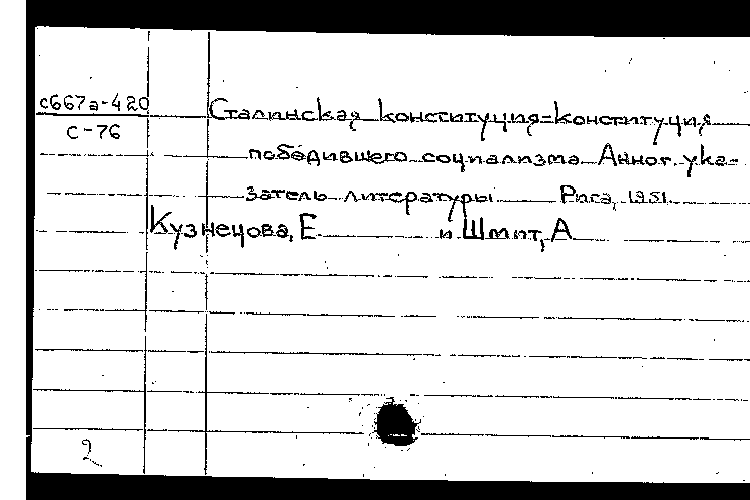 с667а-420
С-76
Сталинская конституция-конституция
победившего социализма. Аннот. ука-
затель литературы Рига, 1951.
Кузнецова, Е и Шмит, А
2